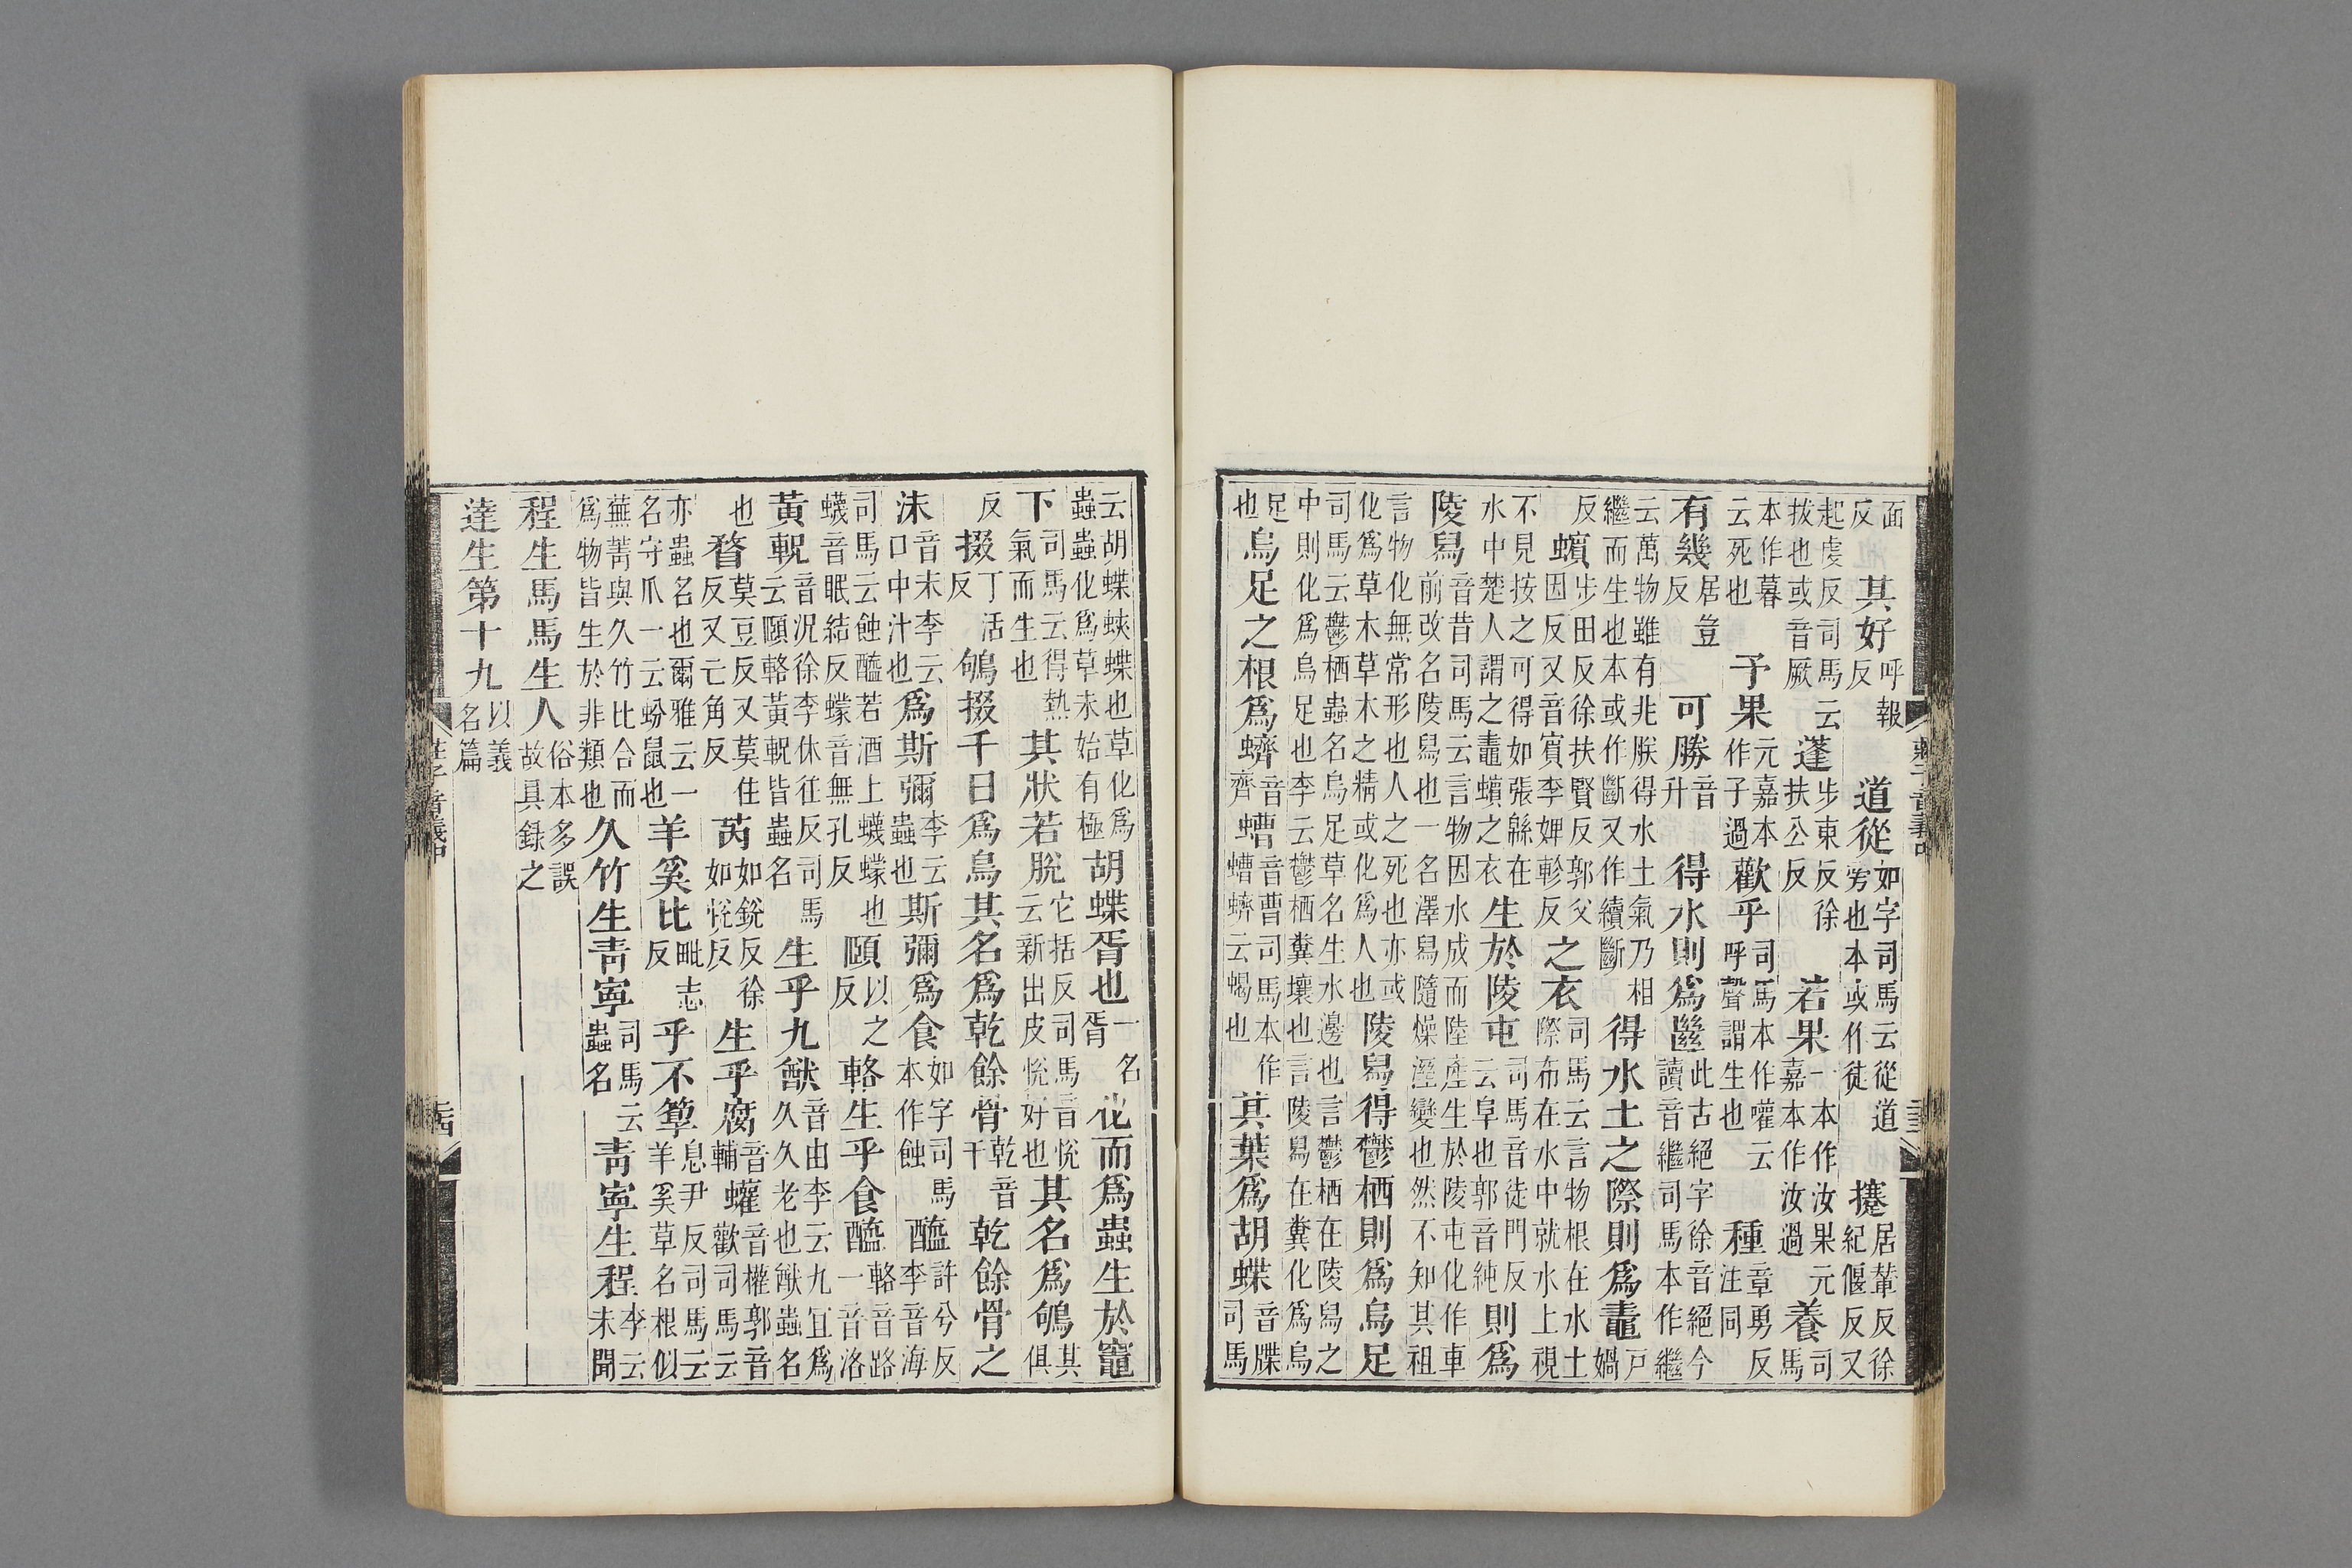 面反其好呼報反道從如字司馬云從道旁也本或作徒攓居輦反徐紀偃反又
起虔反司馬云拔也或音厥蓬步東反徐扶公反若果一本作汝果元嘉本作汝過養司馬
本作暮云死也予果元嘉本作子過歡乎司馬本作嚾云呼聲謂生也種章勇反注同
有幾居豈反可勝音升得水則爲㡭此古絕字徐音絕今讀音繼司馬本作繼
云萬物雖有兆朕得水土氣乃相繼而生也本或作斷又作續斷得水土之際則爲鼃戸媧
反蠙步田反徐扶賢反郭父因反又音賓李婢軫反之衣司馬云言物根在水土際布在水中就水上視
不見按之可得如張緜在水中楚人謂之鼃蠙之衣生於陵屯司馬音徒門反云阜也郭音純則爲
陵舄音昔司馬云言物因水成而陸產生於陵屯化作車前改名陵舄也一名澤舄隨燥溼變也然不知其祖
言物化無常形也人之死也亦或化爲草木草木之精或化爲人也陵舄得鬱栖則爲烏足
司馬云鬱栖蟲名烏足草名生水邊也言鬱栖在陵舄之中則化爲烏足也李云鬱栖糞壤也言陵舄在糞化爲烏
足也烏足之根爲蠐音齊螬音曹司馬本作螬蠐云蝎也其葉爲胡蝶音牒司馬
莊子音義中
云胡蝶蛺蝶也草化爲蟲蟲化爲草未始有極胡蝶胥也一名胥化而爲蟲生於竈
下司馬云得熱氣而生也其狀若脫它括反司馬音悅云新出皮悅好也其名爲鴝其俱
反掇丁活反鴝掇千日爲鳥其名爲乾餘骨乾音干乾餘骨之
沫音末李云口中汁也爲斯彌李云蟲也斯彌爲食如字司馬本作蝕醯許兮反李音海
司馬云蝕醯若酒上蠛蠓也蠛音眠結反蠓音無孔反頤以之反輅生乎食醯輅音路一音洛
黃軦音況徐李休往反司馬云頤輅黃軦皆蟲名生乎九猷音由李云九宜爲久久老也猷蟲名
也瞀莫豆反又莫住反又亡角反芮如銳反徐如悅反生乎腐音輔蠸音權郭音歡司馬云
亦蟲名也爾雅云一名守瓜一云蚡鼠也羊奚比毗志反乎不箰息尹反司馬云羊奚草名根似
蕪菁與久竹比合而爲物皆生於非類也久竹生靑寧司馬云蟲名靑寧生程李云未聞
程生馬馬生人俗本多誤故具錄之
達生第十九以義名篇
莊子音義中